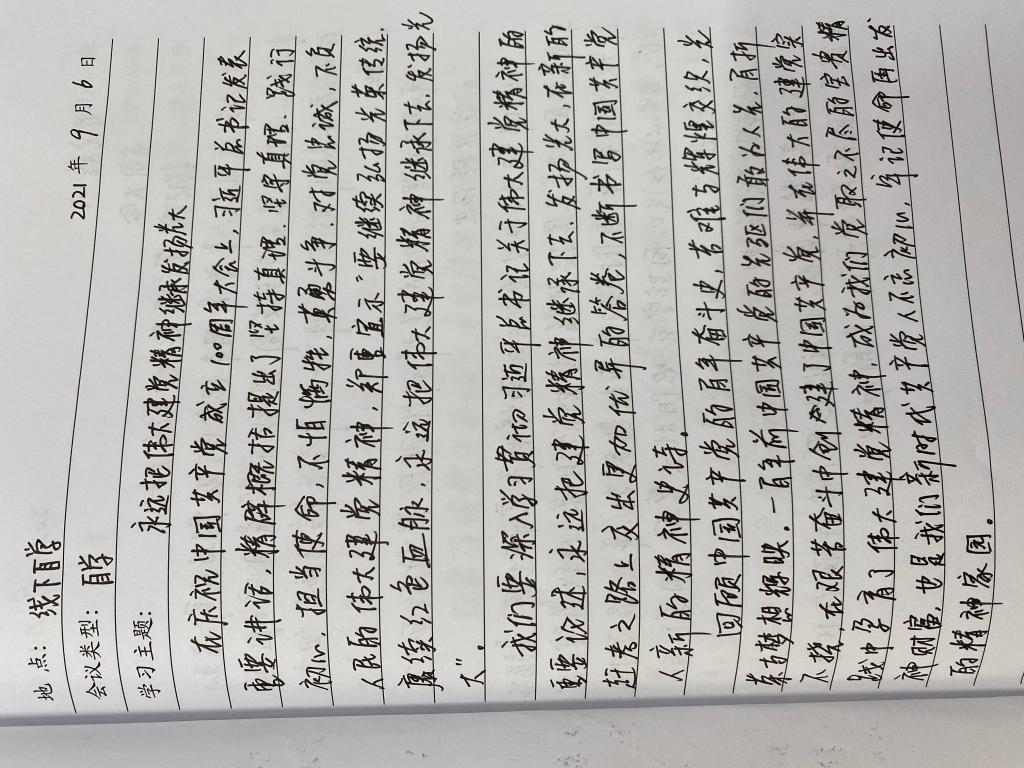 2021 年 9 月 6 日
地 点: 线下自学
会议类型: 自学
学习主题:
永远把伟大建党精神继承发扬光大
在庆祝中国共产党成立100周年大会上,习近平总书记发表
重要讲话,精辟概括提出了“坚持真理、坚守真理、践行
初心、担当使命,不怕牺牲,英勇斗争、对党忠诚,不负
人民的伟大建党精神,郑重宣示“要继续弘扬光荣传统、
赓续红色血脉,永远把伟大建党精神继承下去、发扬光
大”。
我们要深入学习贯彻习近平总书记关于伟大建党精神的
重要论述,永远把建党精神继承下去、发扬光大,在新的
赶考之路上交出更加优异的答卷,不断书写中国共产党
人新的精神史诗。
回顾中国共产党的百年奋斗史,苦难与辉煌交织,光
荣与梦想辉映。一百年前中国共产党的先驱们敢为人先、百折
不挠,在艰苦奋斗中创建了中国共产党,并在伟大的建党实
践中孕育了伟大建党精神,成为我们党取之不尽的宝贵精
神财富,也是我们新时代共产党人不忘初心,牢记使命再出发
的精神家园。